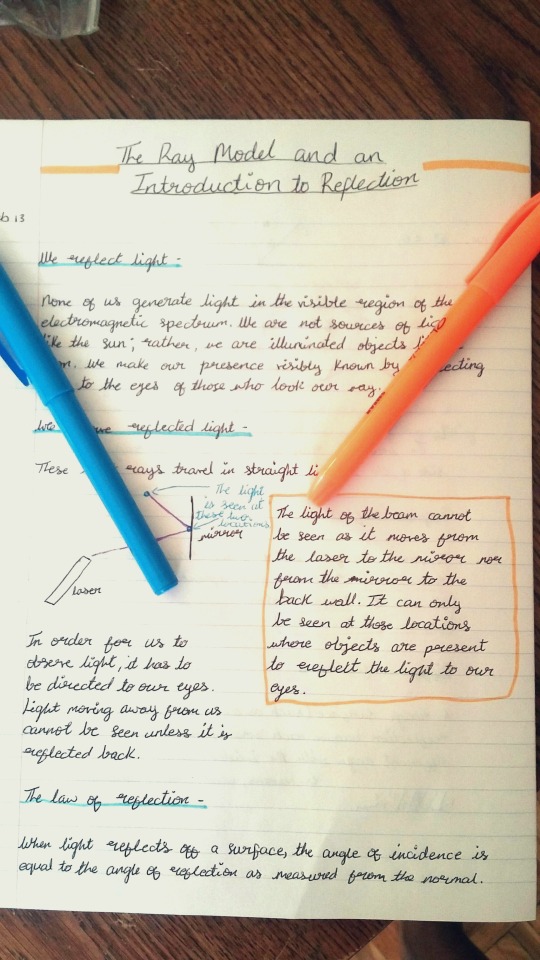 The Ray Model and an
Introduction to Reflection
b 13
We reflect light -
None of us generate light in the visible region of the
electromagnetic spectrum. We are not sources of
like the sun; rather, we are illuminated objects
We make our presence visibly known by
to the eyes of those who look our way.
reflected light -
These rays travel in straight
The light
is seen at
these two
locations
mirror
laser
The light of the beam cannot
be seen as it moves from
the laser to the mirror nor
from the mirror to the
back wall. It can only
be seen at those locations
where objects are present
to reflelt the light to our
eyes.
In order for us to
observe light, it has to
be directed to our eyes.
Light moving away from us
cannot be seen unless it is
reflected back.
The law of reflection -
When light reflects off a surface, the angle of incidence is
equal to the angle of reflection as measured from the normal.